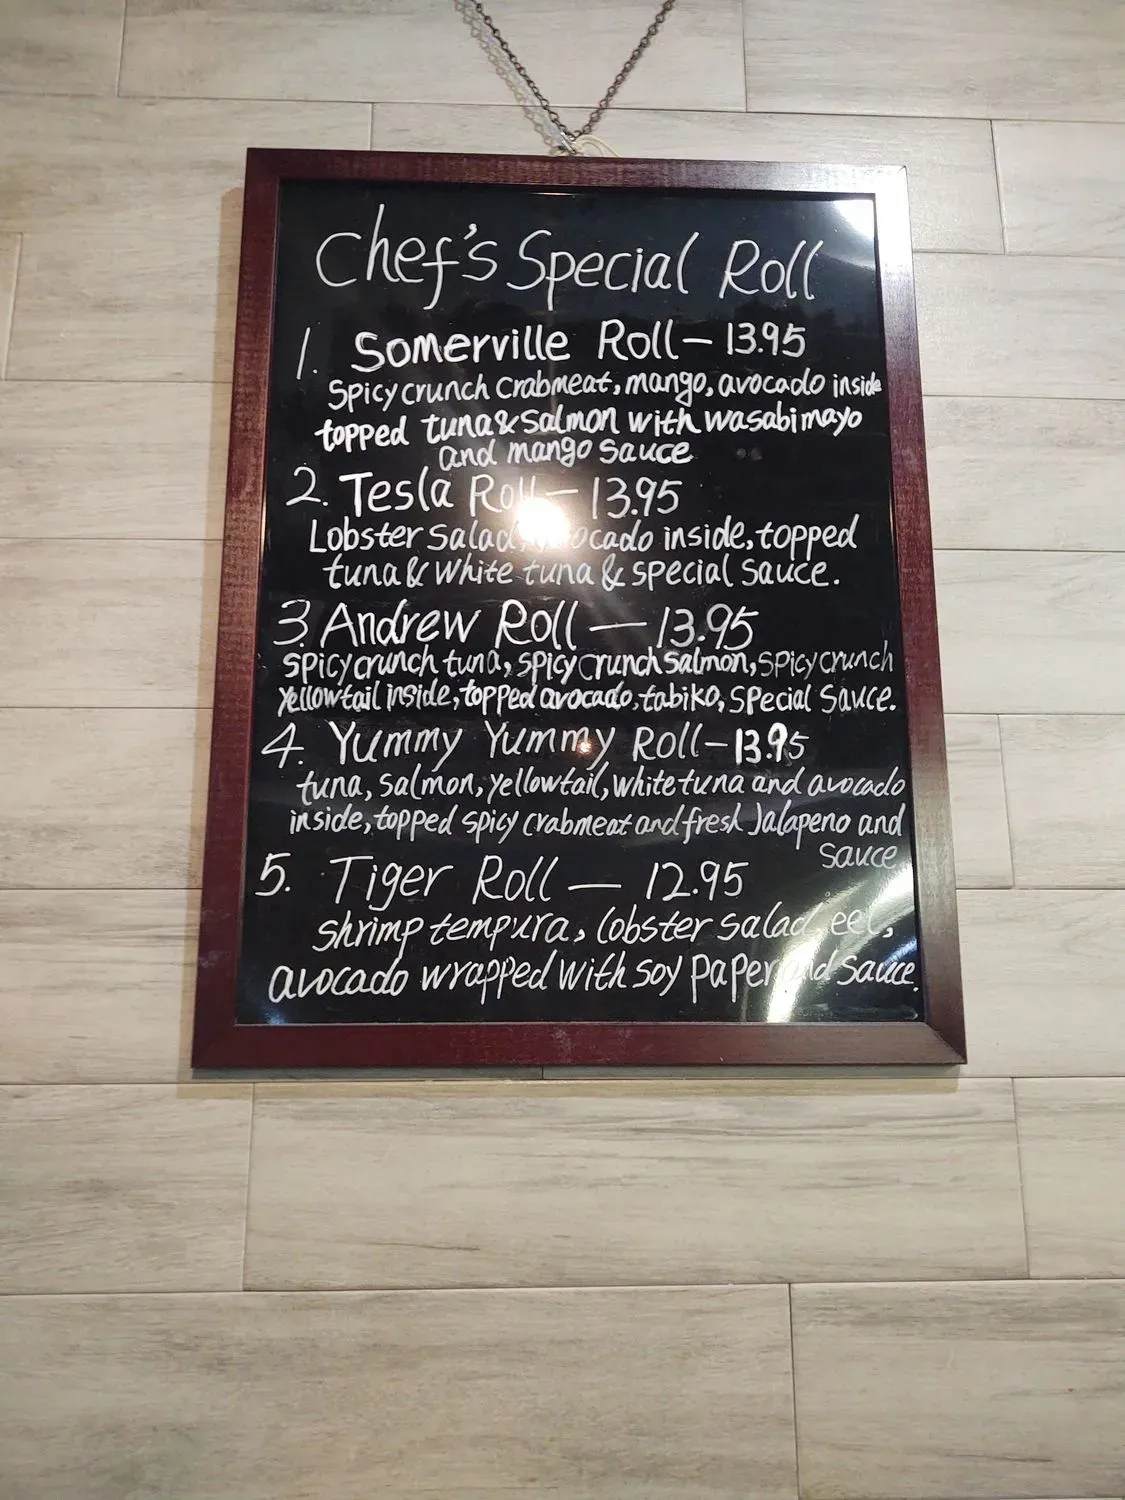 Chef's Special Roll
1. Somerville Roll - 13.95
Spicy crunch crabmeat, mango, avocado inside
topped tuna & salmon with wasabi mayo
and mango sauce
2. Tesla Roll - 13.95
Lobster salad, avocado inside, topped
tuna & white tuna & special sauce.
3. Andrew Roll — 13.95
spicy crunch tuna, spicy crunch salmon, spicy crunch
yellowtail inside, topped avocado, tabiko, special sauce.
4. Yummy Yummy Roll - 13.95
tuna, salmon, yellowtail, white tuna and avocado
inside, topped spicy crabmeat and fresh Jalapeno and
sauce
5. Tiger Roll — 12.95
shrimp tempura, lobster salad, eel,
avocado wrapped with soy paper and sauce.